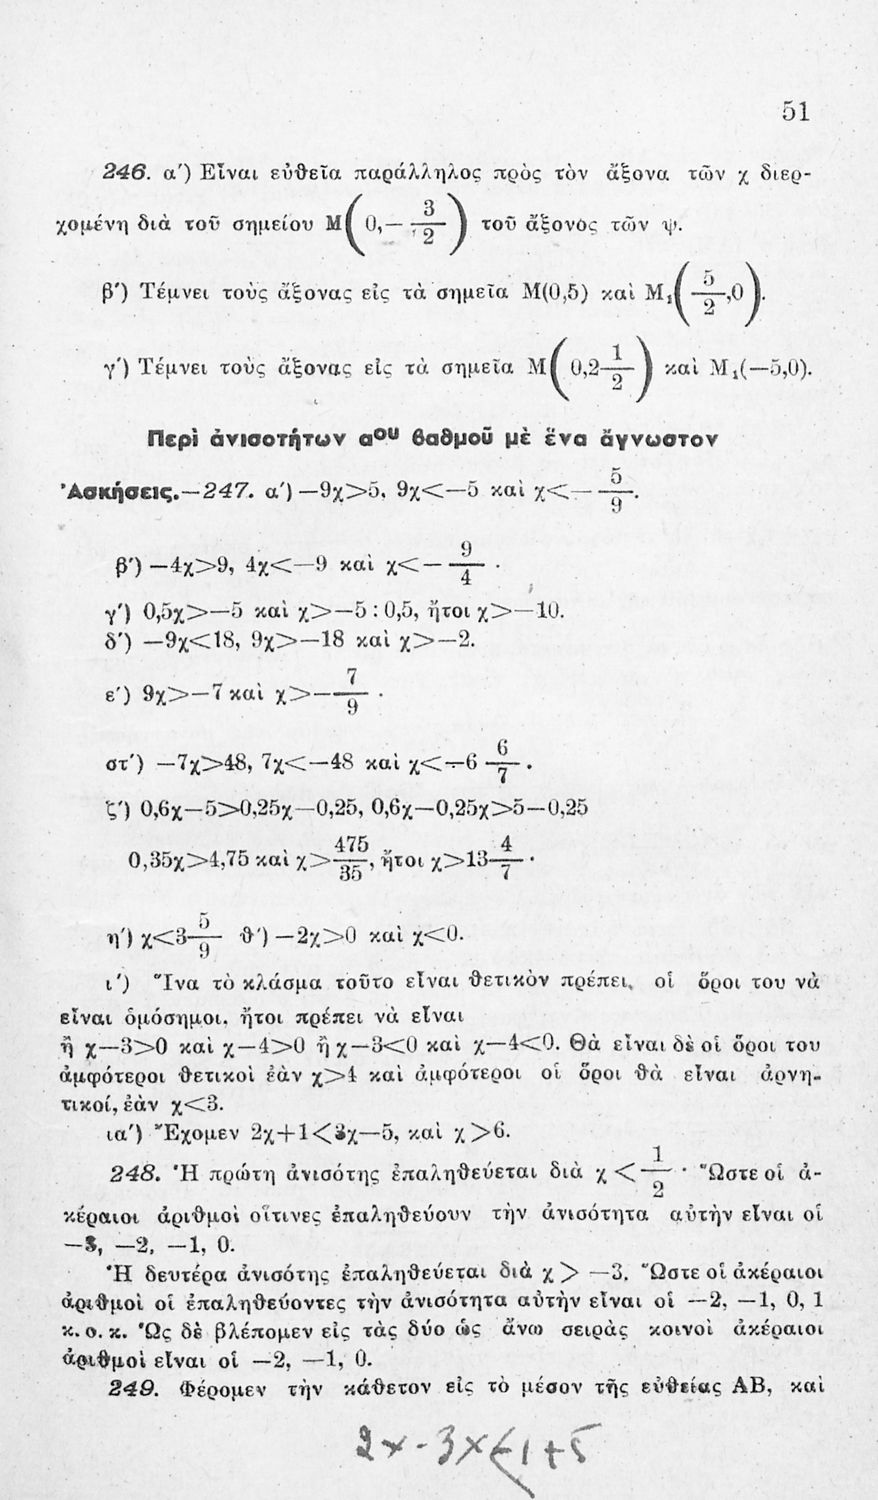 51
246. α΄) Εἶναι εὐθεῖα παράλληλος πρὸς τὸν ἄξονα τῶν χ διερ-
χομένη διὰ τοῦ σημείου Μ(0,— 3/2) τοῦ ἄξονος τῶν ψ.
β΄) Τέμνει τοὺς ἄξονας εἰς τὰ σημεῖα Μ(0,5) καὶ Μ₁(5/2,0).
γ΄) Τέμνει τοὺς ἄξονας εἰς τὰ σημεῖα Μ(0,2 1/2) καὶ Μ₁(—5,0).
Περὶ ἀνισοτήτων αου βαθμοῦ μὲ ἕνα ἄγνωστον
Ἀσκήσεις.—247. α΄) —9χ>5, 9χ<—5 καὶ χ<— 5/9.
β΄) —4χ>9, 4χ<—9 καὶ χ<— 9/4.
γ΄) 0,5χ>—5 καὶ χ>—5 : 0,5, ἤτοι χ>—10.
δ΄) —9χ<18, 9χ>—18 καὶ χ>—2.
ε΄) 9χ>—7 καὶ χ>— 7/9.
στ΄) —7χ>48, 7χ<—48 καὶ χ<—6 6/7.
ζ΄) 0,6χ—5>0,25χ—0,25, 0,6χ—0,25χ>5—0,25
0,35χ>4,75 καὶ χ> 475/35, ἤτοι χ>13 4/7.
η΄) χ<3 5/9 θ΄) —2χ>0 καὶ χ<0.
ι΄) Ἵνα τὸ κλάσμα τοῦτο εἶναι θετικὸν πρέπει οἱ ὅροι του νὰ
εἶναι ὁμόσημοι, ἤτοι πρέπει νὰ εἶναι
ἢ χ—3>0 καὶ χ—4>0 ἢ χ—3<0 καὶ χ—4<0. Θὰ εἶναι δὲ οἱ ὅροι του
ἀμφότεροι θετικοὶ ἐὰν χ>4 καὶ ἀμφότεροι οἱ ὅροι θὰ εἶναι ἀρνη-
τικοί, ἐὰν χ<3.
ια΄) Ἔχομεν 2χ+1<3χ—5, καὶ χ>6.
248. Ἡ πρώτη ἀνισότης ἐπαληθεύεται διὰ χ < 1/2. Ὥστε οἱ ἀ-
κέραιοι ἀριθμοὶ οἵτινες ἐπαληθεύουν τὴν ἀνισότητα αὐτὴν εἶναι οἱ
—3, —2, —1, 0.
Ἡ δευτέρα ἀνισότης ἐπαληθεύεται διὰ χ > —3. Ὥστε οἱ ἀκέραιοι
ἀριθμοὶ οἱ ἐπαληθεύοντες τὴν ἀνισότητα αὐτὴν εἶναι οἱ —2, —1, 0, 1
κ. ο. κ. Ὡς δὲ βλέπομεν εἰς τὰς δύο ὡς ἄνω σειρὰς κοινοὶ ἀκέραιοι
ἀριθμοὶ εἶναι οἱ —2, —1, 0.
249. Φέρομεν τὴν κάθετον εἰς τὸ μέσον τῆς εὐθείας ΑΒ, καὶ
2x-3x<1+5